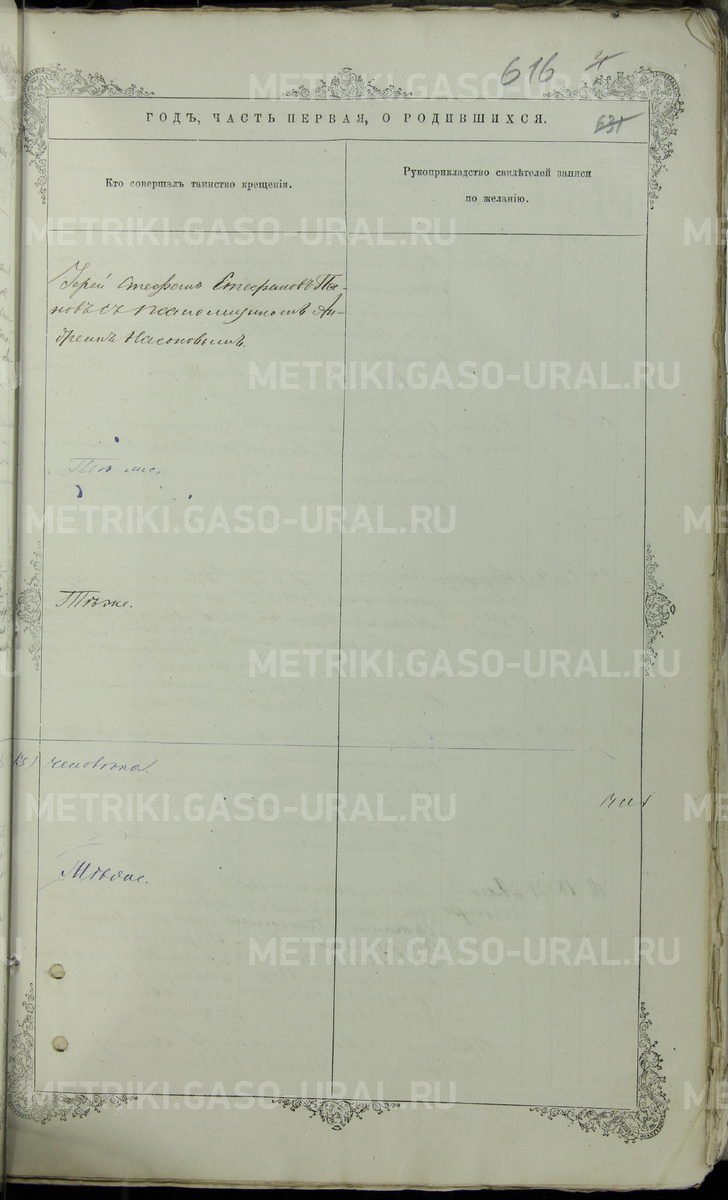 616
21
631
ГОДЪ, ЧАСТЬ ПЕРВАЯ, О РОДИВШИХСЯ.
Кто совершалъ таинство крещенія.
Рукоприкладство свидѣтелей записи
по желанію.
Іерей Стефанъ Стефановъ По-
повъ съ псаломщикомъ Ан-
дреемъ Насоновымъ.
Тѣ же.
Тѣ же.
13) человѣка.
Тѣ же.
METRIKI.GASO-URAL.RU